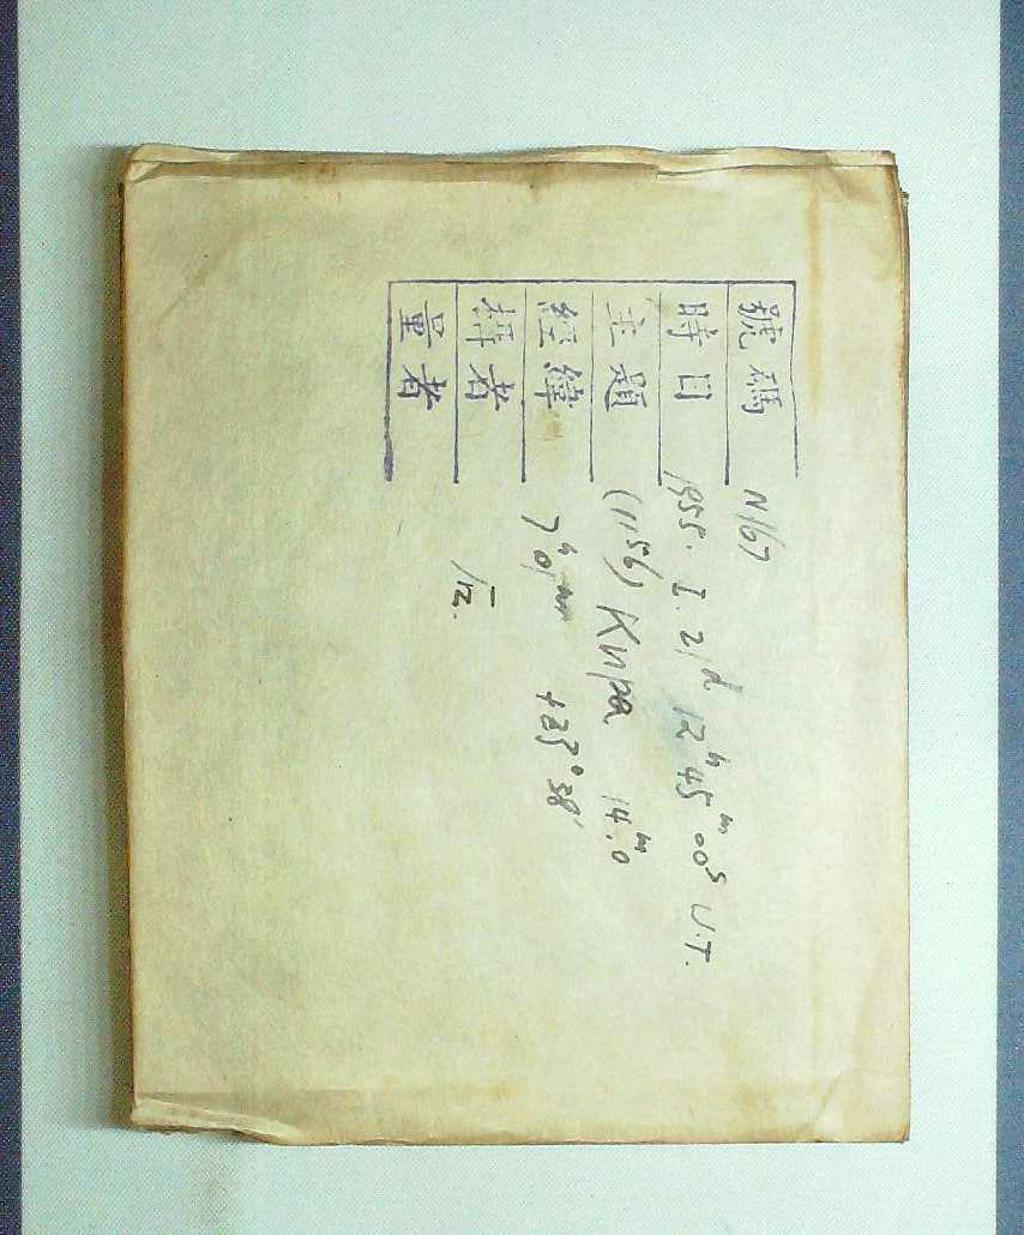 號碼 N167
時日 1955. I. 21ᵈ 12ʰ 45ᵐ 00ˢ U.T.
主題 (1156) Кира 14.ᵐ0
經緯 7ʰ 01ᵐ +25° 38′
者
量者